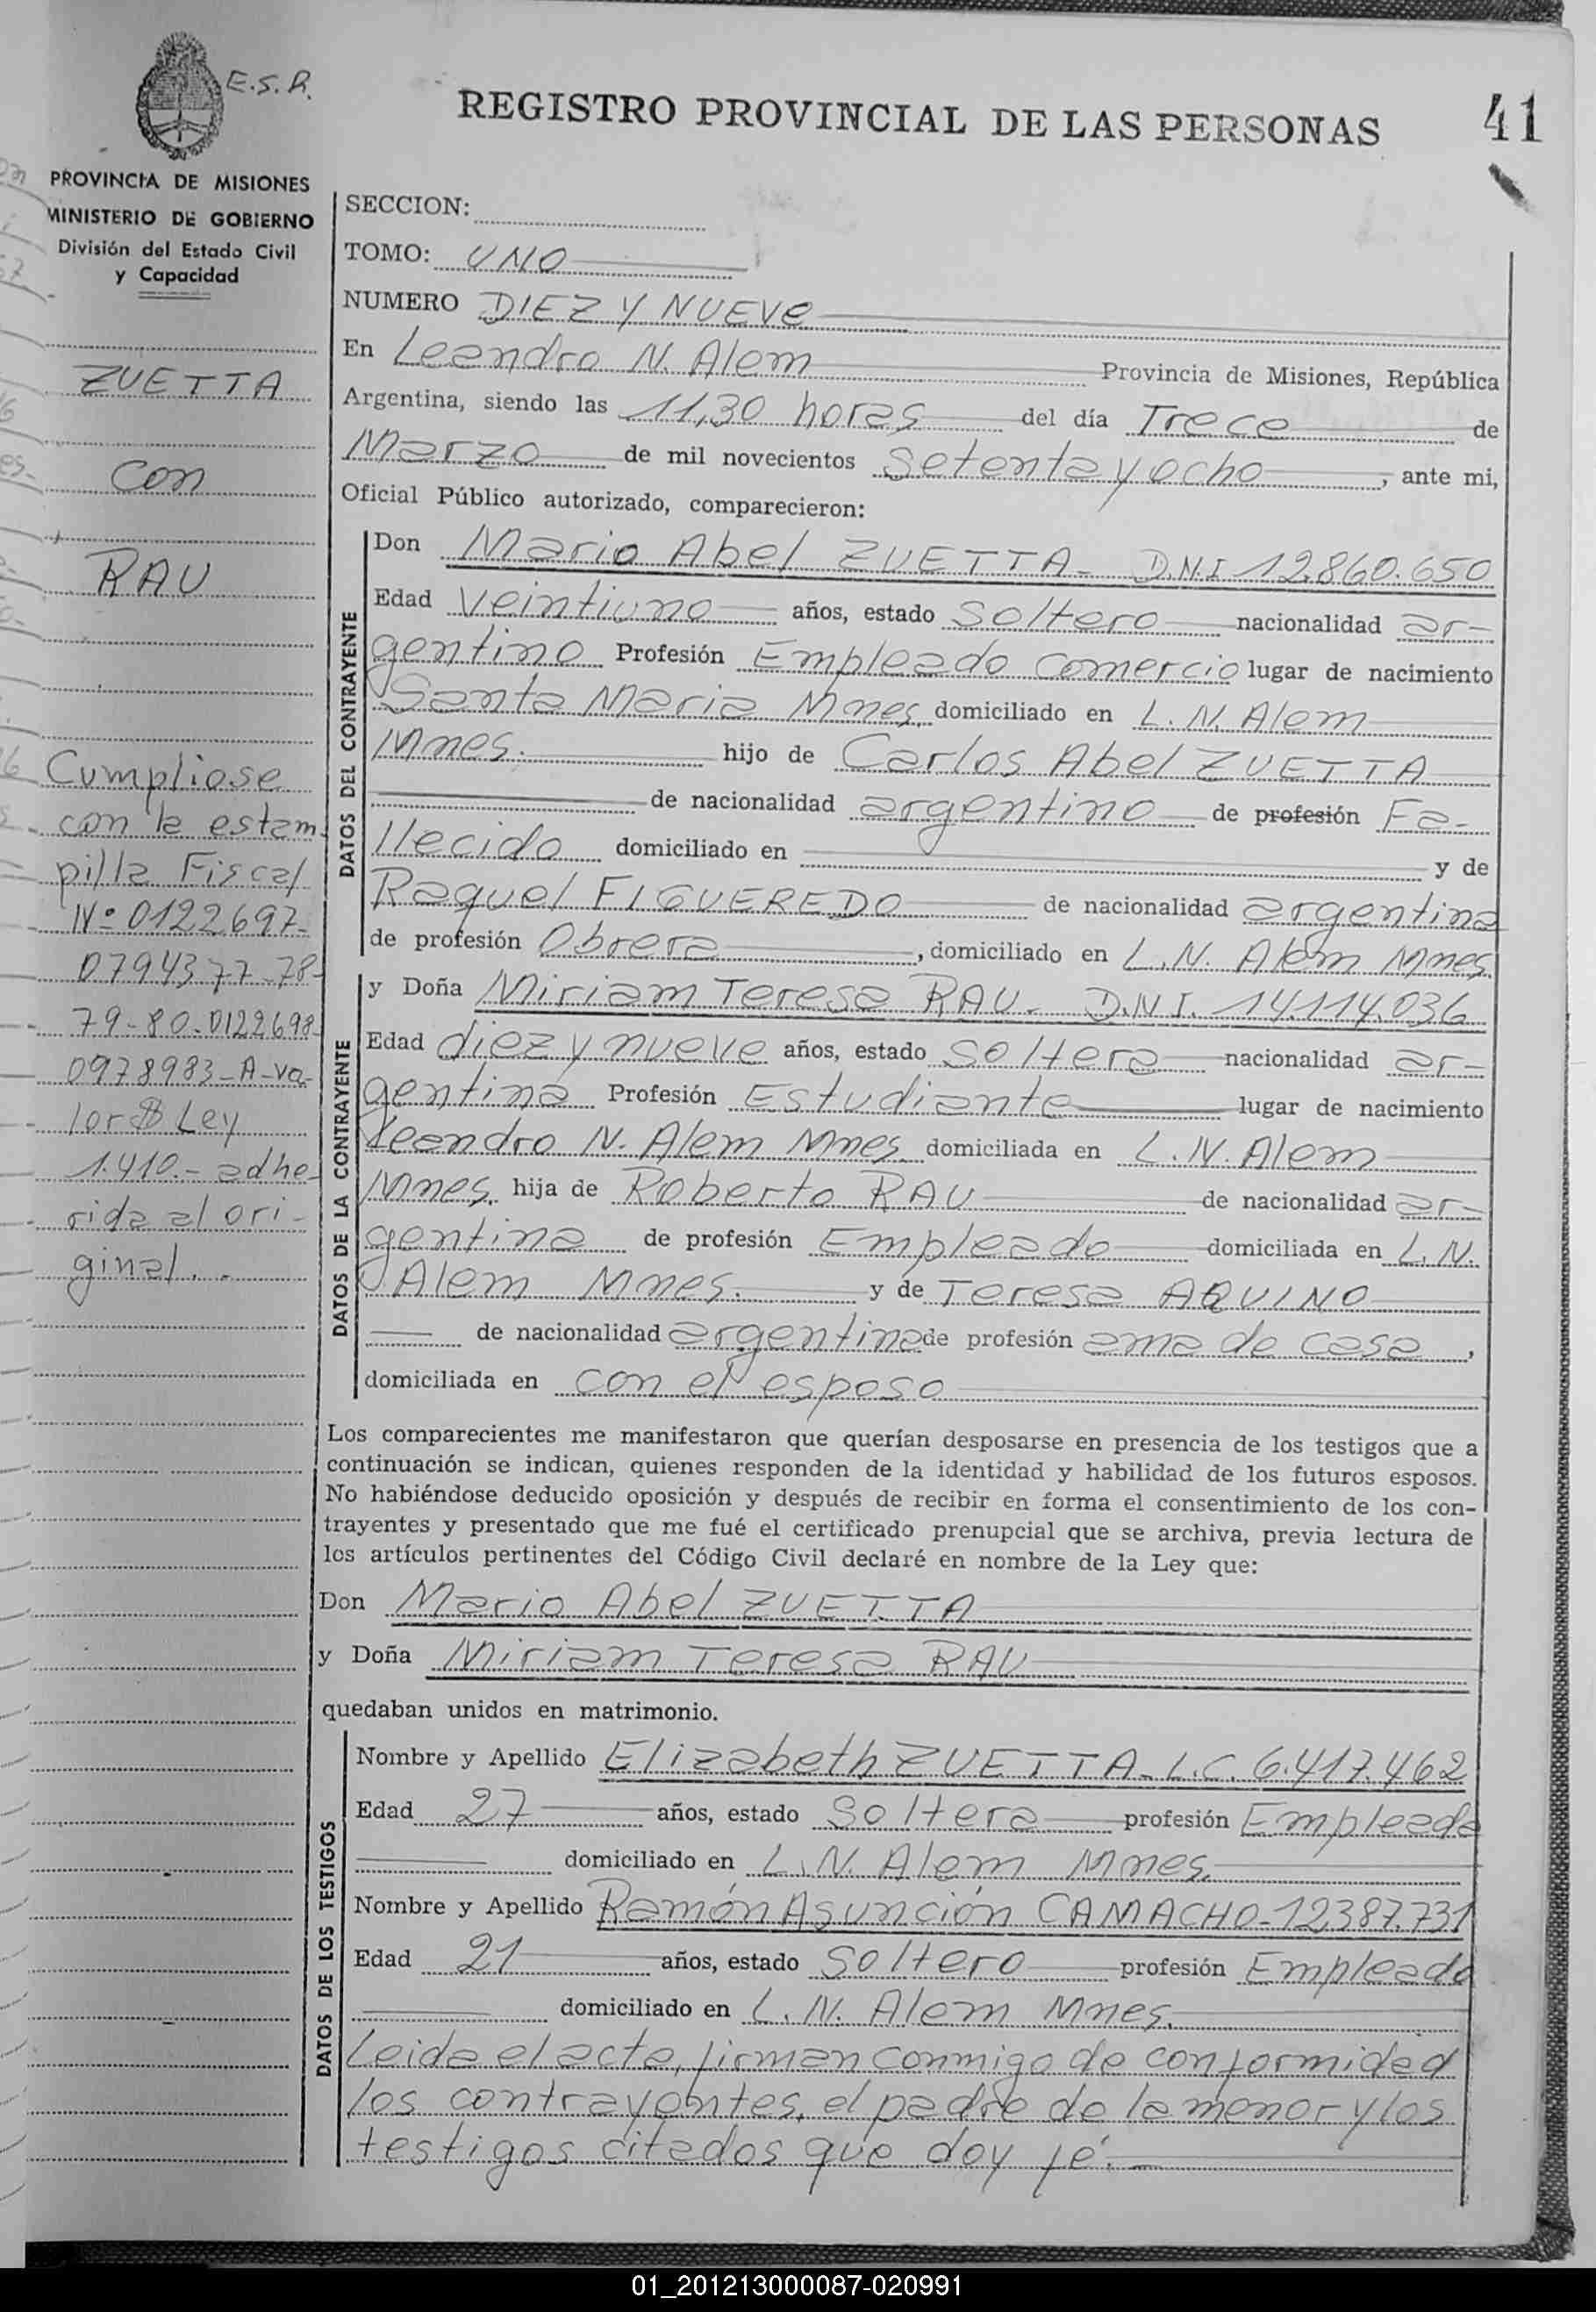 E.S.R.
PROVINCIA DE MISIONES
MINISTERIO DE GOBIERNO
División del Estado Civil
y Capacidad
ZUETTA
con
RAU
Cumpliose
con la estam
pilla Fiscal
Nº 0122697-
0794377-78-
79-80-0122698-
0978983-A-va-
lor $ Ley
1.410.- adhe
rida al ori-
ginal..
REGISTRO PROVINCIAL DE LAS PERSONAS
41
SECCION:
TOMO: UNO
NUMERO DIEZ Y NUEVe
En Leandro N. Alem Provincia de Misiones, República
Argentina, siendo las 11,30 horas del día Trece de
Marzo de mil novecientos setenta y ocho, ante mi,
Oficial Público autorizado, comparecieron:
DATOS DEL CONTRAYENTE
Don Mario Abel ZUETTA- D.N.I 12.860.650
Edad veintiuno años, estado soltero nacionalidad ar-
gentino Profesión Empleado Comercio lugar de nacimiento
Santa Maria Mnes. domiciliado en L.N. Alem
Mnes. hijo de Carlos Abel ZUETTA
de nacionalidad argentino de profesión Fa-
llecido domiciliado en y de
Raquel FIGUEREDO de nacionalidad argentina
de profesión Obrera, domiciliado en L.N. Alem Mnes.
DATOS DE LA CONTRAYENTE
y Doña Miriam Teresa RAU- D.N.I. 14.114.036
Edad diez y nueve años, estado soltera nacionalidad ar-
gentina Profesión Estudiante lugar de nacimiento
Leandro N. Alem Mnes. domiciliada en L.N. Alem
Mnes. hija de Roberto RAU de nacionalidad ar-
gentina de profesión Empleado domiciliada en L.N.
Alem Mnes. y de Teresa AQUINO
de nacionalidad argentina de profesión ama de casa,
domiciliada en con el esposo
Los comparecientes me manifestaron que querían desposarse en presencia de los testigos que a
continuación se indican, quienes responden de la identidad y habilidad de los futuros esposos.
No habiéndose deducido oposición y después de recibir en forma el consentimiento de los con-
trayentes y presentado que me fué el certificado prenupcial que se archiva, previa lectura de
los artículos pertinentes del Código Civil declaré en nombre de la Ley que:
Don Mario Abel ZUETTA
y Doña Miriam Teresa RAU
quedaban unidos en matrimonio.
DATOS DE LOS TESTIGOS
Nombre y Apellido Elizabeth ZUETTA-L.C. 6.417.462
Edad 27 años, estado soltera profesión Empleada
domiciliado en L.N. Alem Mnes.
Nombre y Apellido Ramón Asunción CAMACHO-12.387.731
Edad 21 años, estado soltero profesión Empleado
domiciliado en L.N. Alem Mnes.
Leida el acta, firman conmigo de conformidad
los contrayentes, el padre de la menor y los
testigos citados que doy fé.-
01_201213000087-020991